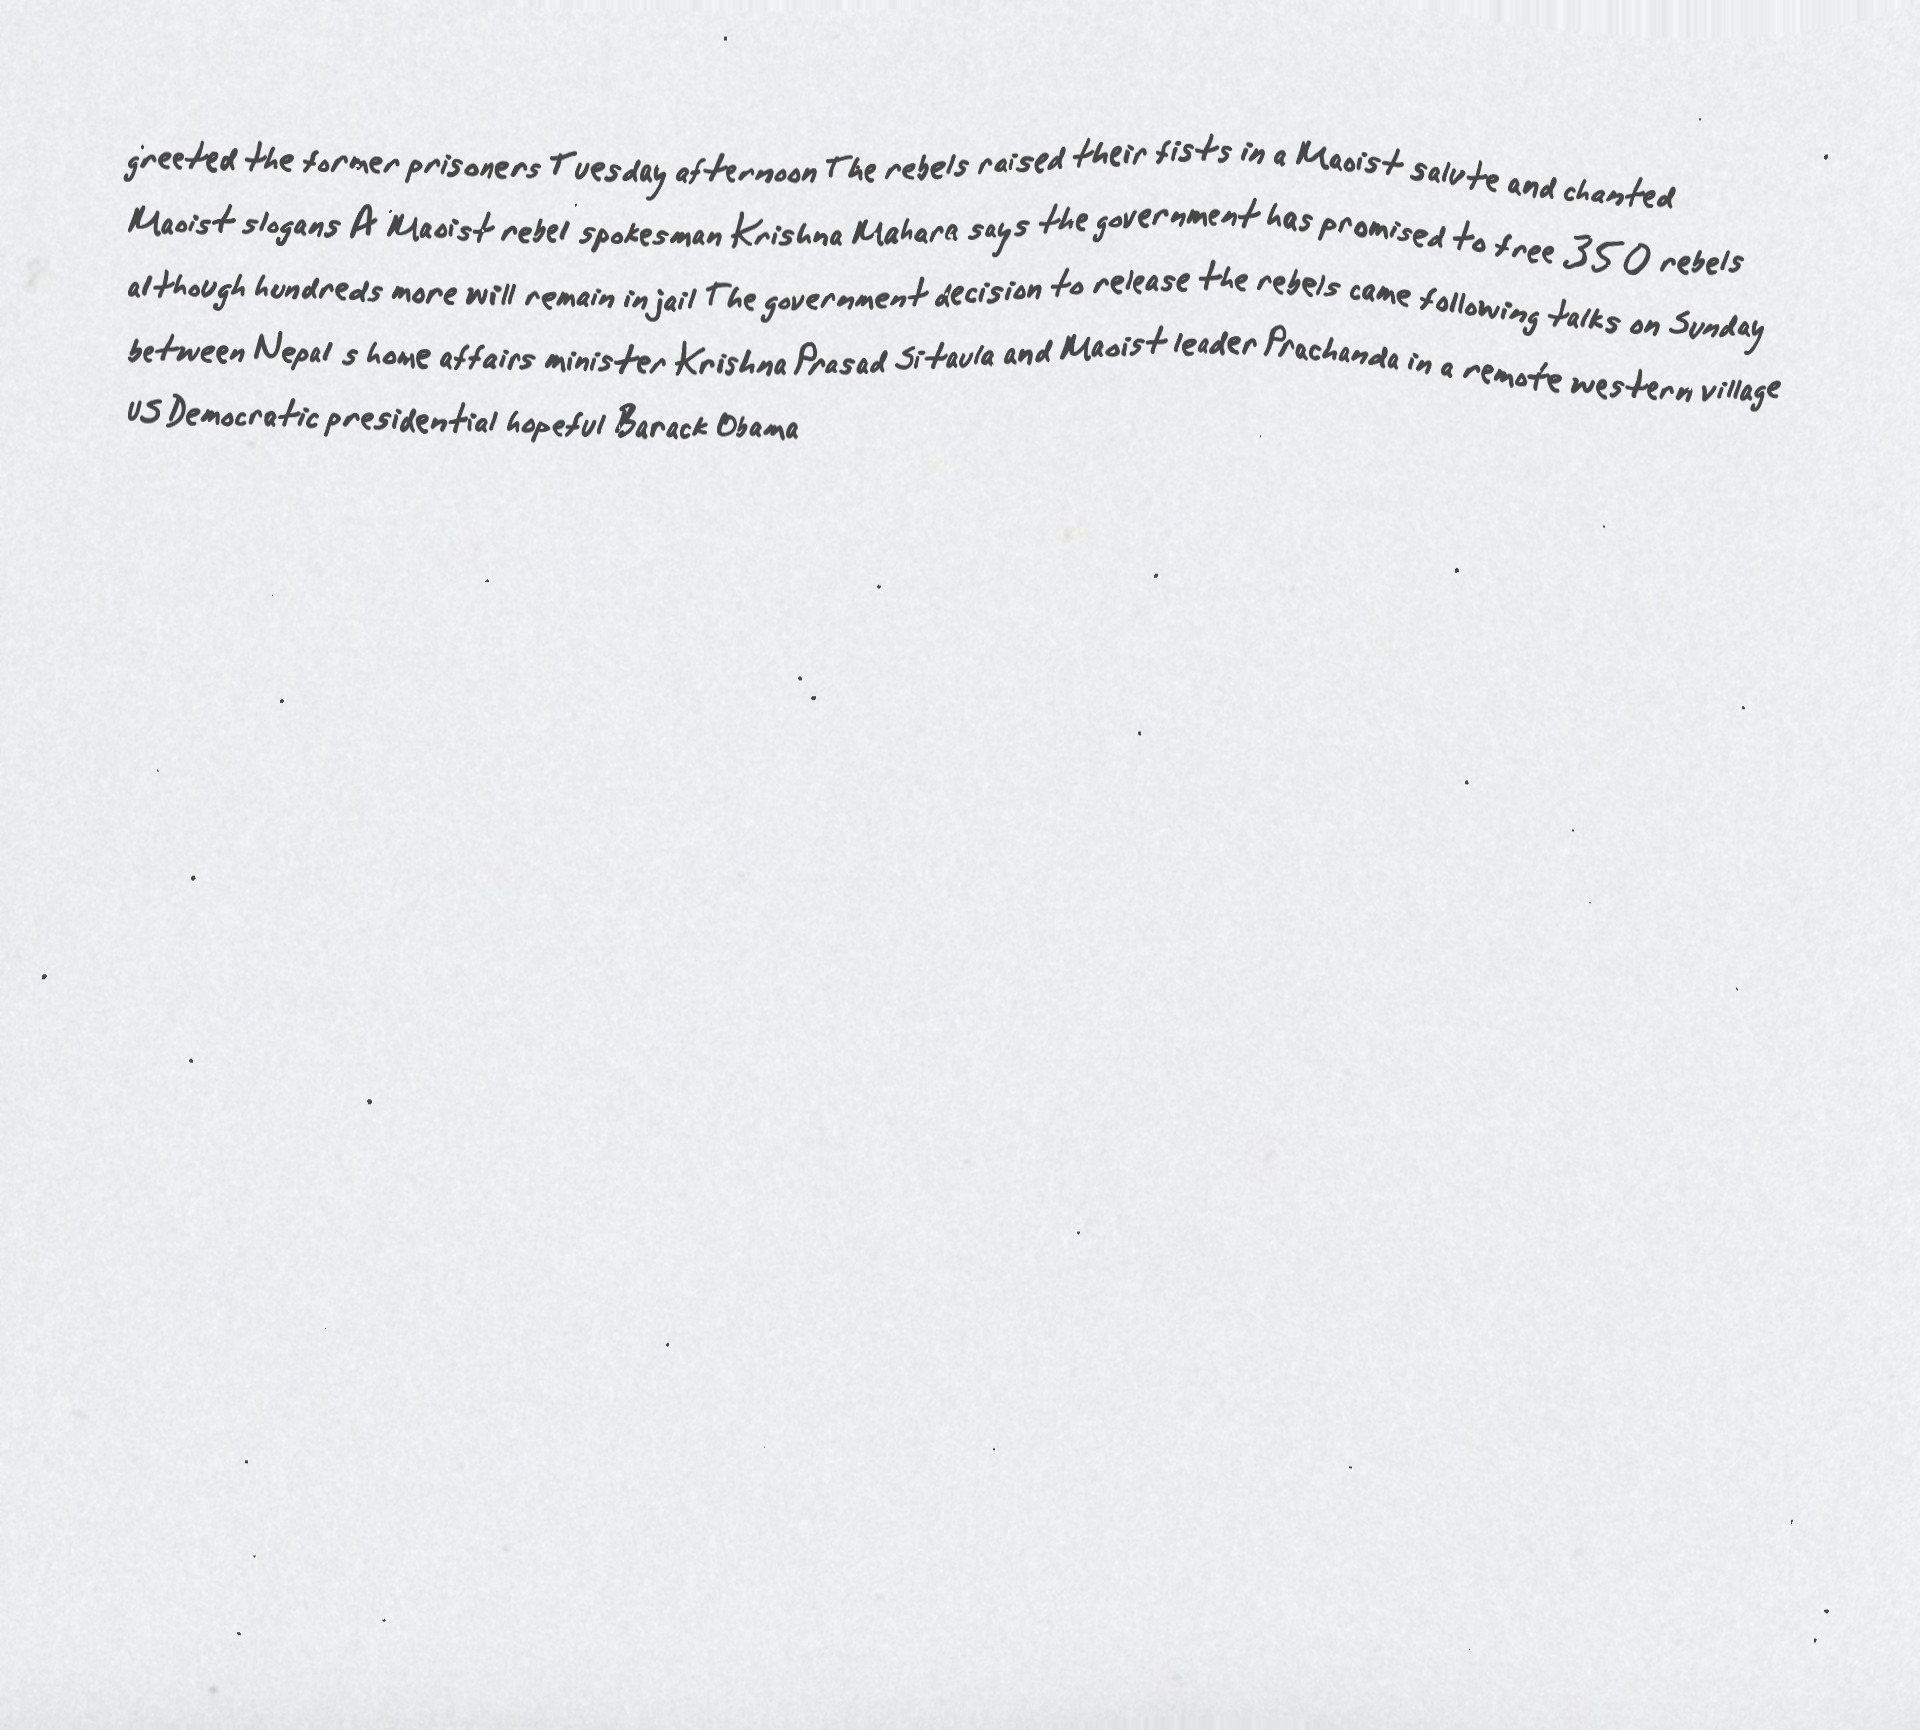 greeted the former prisoners Tuesday afternoon The rebels raised their fists in a Maoist salute and chanted
Maoist slogans A Maoist rebel spokesman Krishna Mahara says the government has promised to free 350 rebels
although hundreds more will remain in jail The government decision to release the rebels came following talks on Sunday
between Nepal s home affairs minister Krishna Prasad Sitaula and Maoist leader Prachanda in a remote western village
US Democratic presidential hopeful Barack Obama